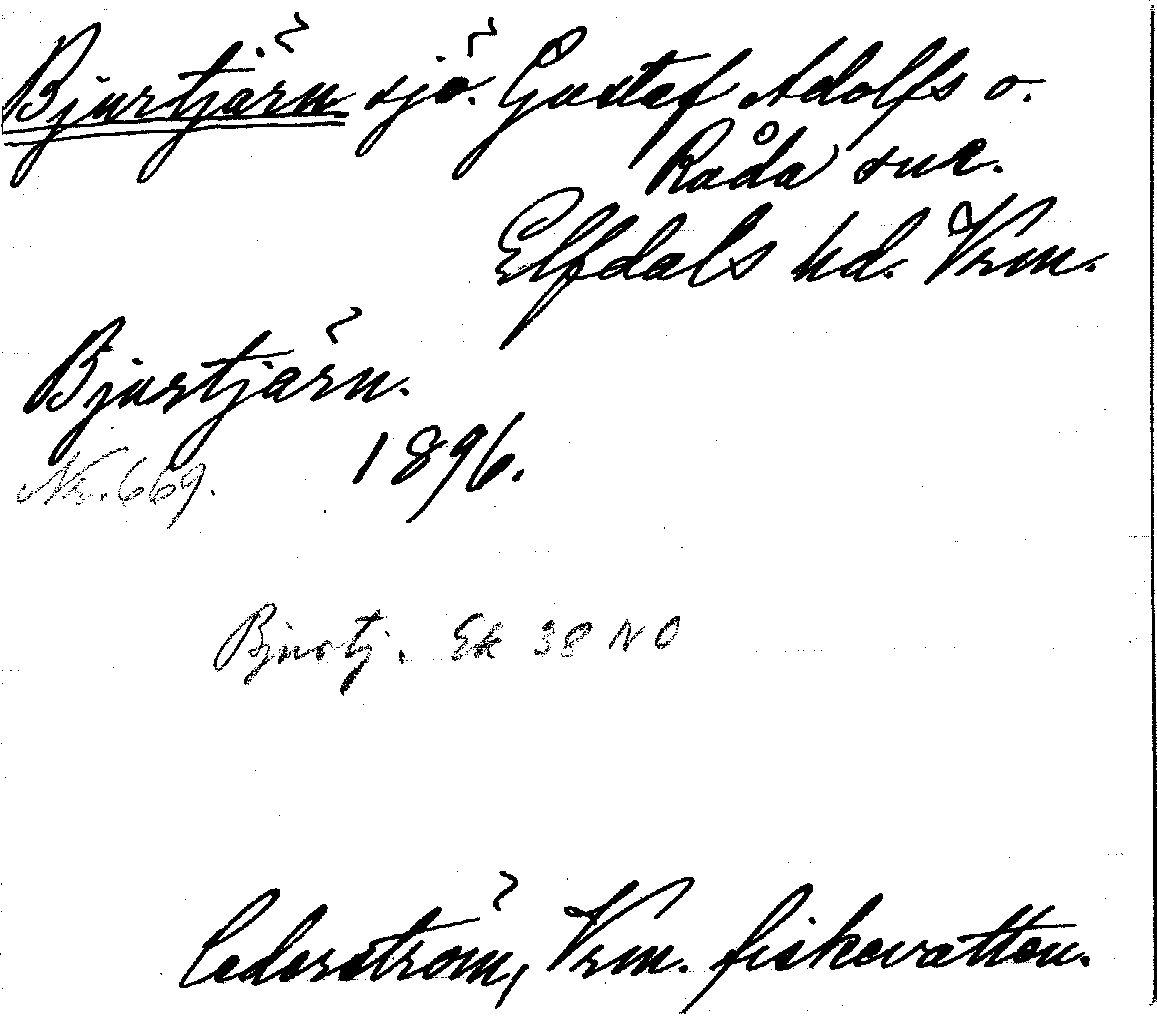 Bjurtjärn sjö. Gustaf Adolfs o.
Råda snr.
Elfdals hd. Vrm.
Bjurtjärn.
1896.
Nr. 669.
Bjurtj. Ek 38 NO
Cederström, Vrm. fiskevatten.